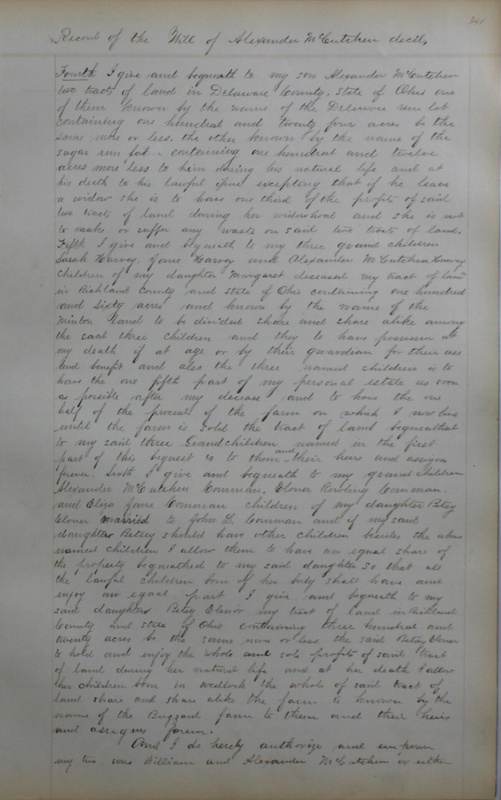 241
Record of the Will of Alexander McCutchen decd,
Fourth I give and bequeath to my son Alexander McCutchen
two tracts of land in Delaware County, State of Ohio one
of them known by the name of the Delaware run lot
containing one hundred and twenty four acres be the
same more or less. the other known by the name of the
sugar run lot - containing one hundred and twelve
acres more less to him during his natural life and at
his death to his lawful issue excepting that if he leave
a widow she is to have one third of the profits of said
two tracts of land during her widowhood and she is not
to make or suffer any waste on said two tracts of land.
Fifth I give and bequeath to my three grand children
Sarah Harvey, Jane Harvey and Alexander McCutchen Harvey
Children of my daughter Margaret deceased my tract of land
in Richland County and state of Ohio containing one hundred
and sixty acres and known by the name of the
Minton land to be divided share and share alike among
the said three children and they to have possession at
my death if at age or by their guardian for their use
and benefit and also the three named children is to
have the one fifth part of my personal estate as soon
as possible after my decease and to have the one
half of the proceeds of the farm on which I now live
until the farm is sold the tract of land bequeathed
to my said three Grandchildren named in the first
part of this bequest is to them and their heirs and assigns
forever. Sixth I give and bequeath to my grand children
Alexander McCutchen Conman, Elonor Conman
and Eliza Jane Conman children of my daughter Betsy
Elonor married to John L. Conman and if my said
daughter Betsey should have other children besides the above
named children I allow them to have an equal share of
the property bequeathed to my said daughter so that all
the lawful children born of her body shall have and
enjoy an equal part I give and bequeath to my
said daughter Betsy Elenor my tract of land in Richland
County and state of Ohio containing three hundred and
twenty acres be the same more or less the said Betsy Elenor
to hold and enjoy the whole and sole profits of said tract
of land during her natural life and at her death I allow
her children born in wedlock the whole of said tract of
land share and share alike the farm is known by the
name of the Buzzard farm to them and their heirs
and assigns forever.
And I do hereby authorize and empower
my two sons William and Alexander McCutchen or either